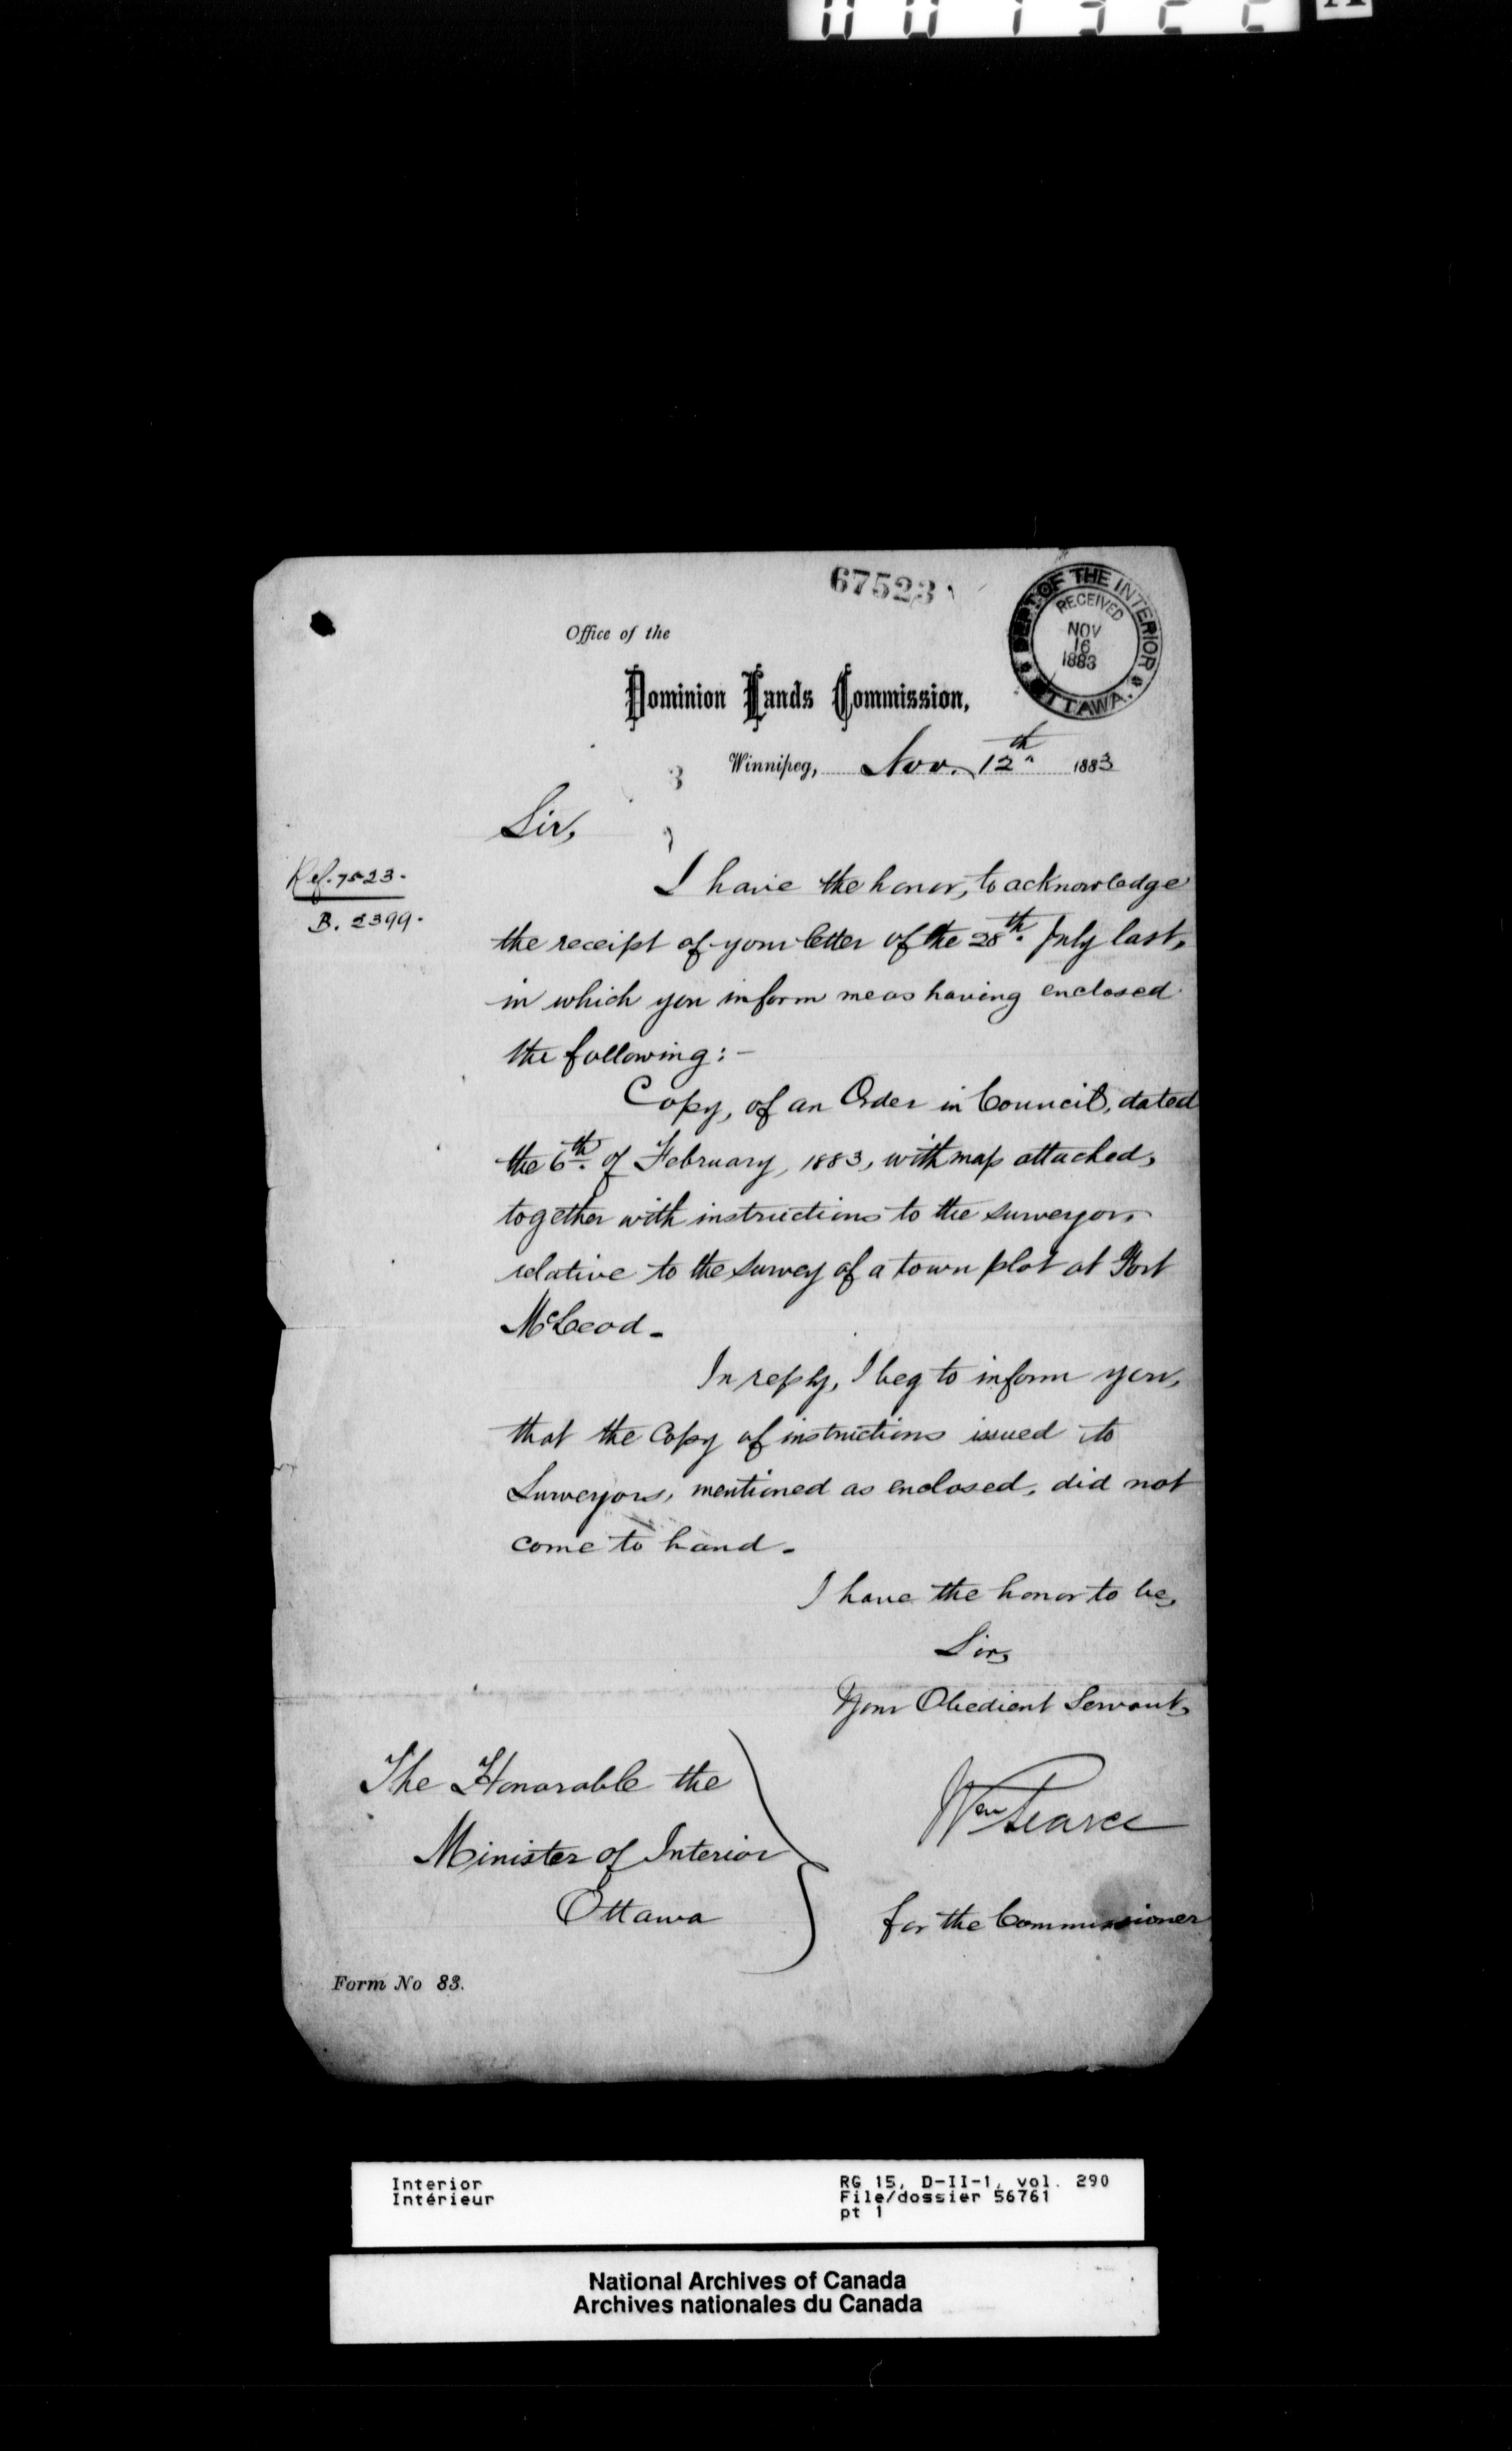 67523
DEPT OF THE INTERIOR
RECEIVED
NOV
16
1883
OTTAWA.
Office of the
Dominion Lands Commission,
Winnipeg, Nov. 12th 1883
Sir,
Ref. 7523.
B. 2399.
I have the honor, to acknowledge
the receipt of your letter of the 28th. July last,
in which you inform me as having enclosed
the following:-
Copy, of an Order in Council, dated
the 6th. of February, 1883, with map attached,
together with instructions to the surveyor,
relative to the survey of a town plot at Fort
McLeod.
In reply, I beg to inform you,
that the Copy of instructions issued to
Surveyors, mentioned as enclosed, did not
come to hand.
I have the honor to be,
Sir,
Your Obedient Servant,
The Honorable the
Minister of Interior
Ottawa
Wm Pearce
for the Commissioner
Form No 83.
Interior
Intérieur
RG 15, D-II-1, vol. 290
File/dossier 56761
pt 1
National Archives of Canada
Archives nationales du Canada